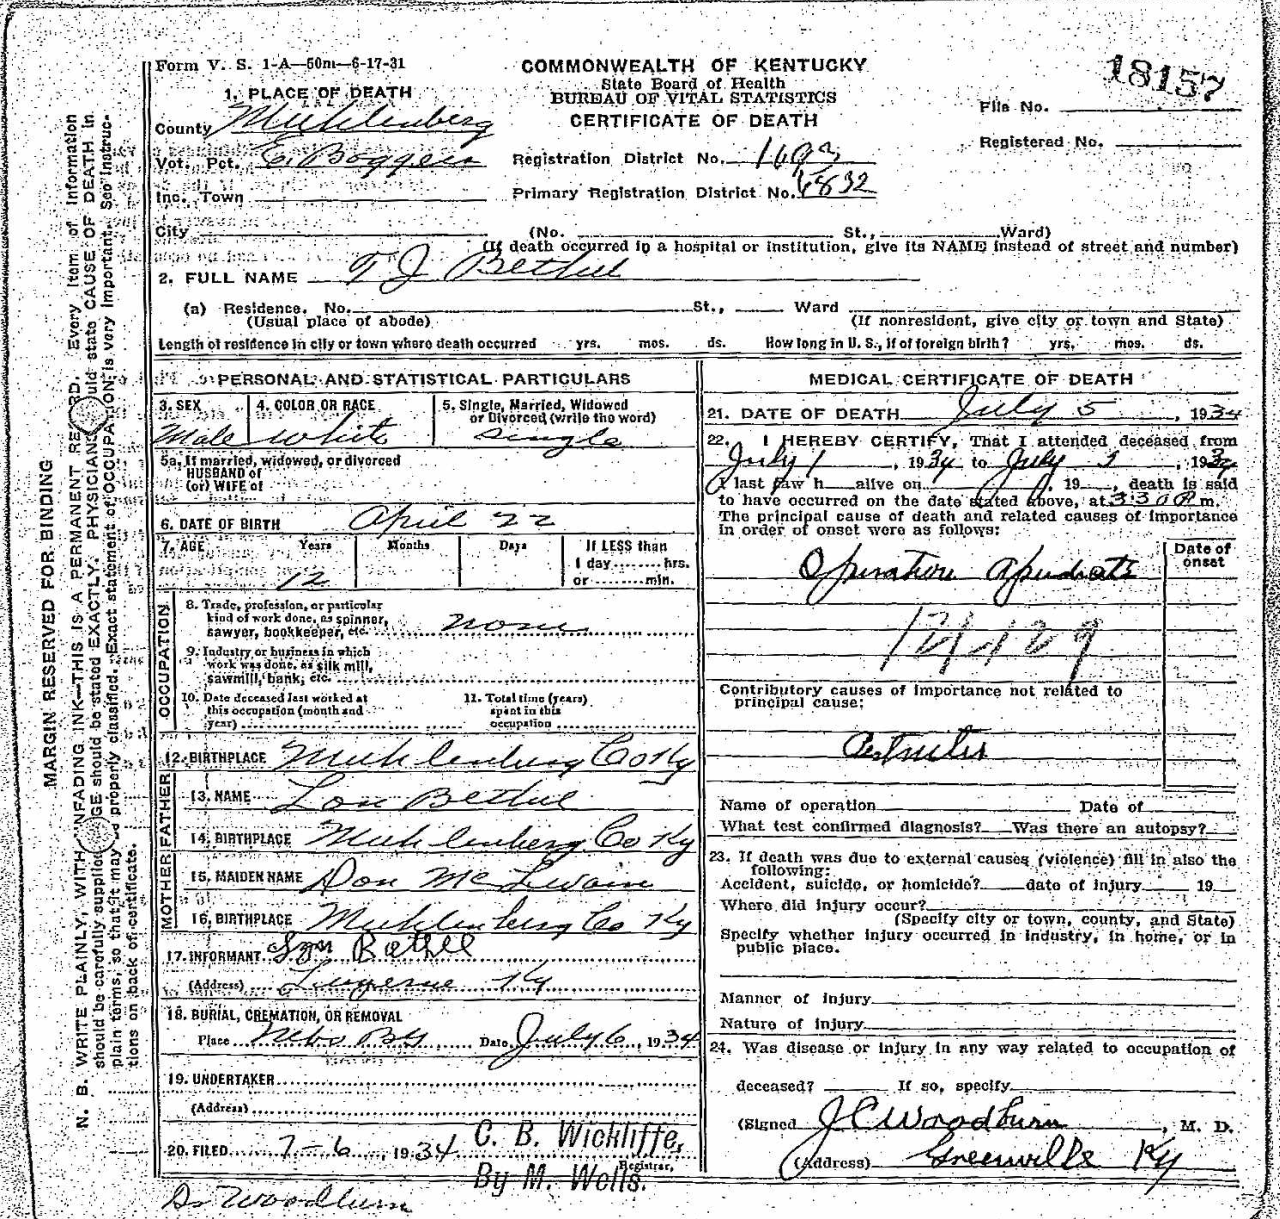 Form V. S. 1-A—50m—6-17-31
COMMONWEALTH OF KENTUCKY
State Board of Health
BUREAU OF VITAL STATISTICS
CERTIFICATE OF DEATH
18157
File No.
Registered No.
1. PLACE OF DEATH
County Muhlenberg
Vot. Pct. E. Boggess
Inc. Town
City
Registration District No. 1093
Primary Registration District No. 6832
(No. St., Ward)
(If death occurred in a hospital or institution, give its NAME instead of street and number)
2. FULL NAME T J Bethel
(a) Residence. No. St., Ward
(Usual place of abode) (If nonresident, give city or town and State)
Length of residence in city or town where death occurred yrs. mos. ds. How long in U. S., if of foreign birth? yrs. mos. ds.
PERSONAL AND STATISTICAL PARTICULARS
3. SEX 4. COLOR OR RACE 5. Single, Married, Widowed
or Divorced (write the word)
Male White Single
5a. If married, widowed, or divorced
HUSBAND of
(or) WIFE of
6. DATE OF BIRTH April 22
7. AGE Years Months Days If LESS than
1 day........hrs.
12 or ........min.
OCCUPATION
8. Trade, profession, or particular
kind of work done, as spinner,
sawyer, bookkeeper, etc. none
9. Industry or business in which
work was done, as silk mill,
sawmill, bank, etc.
10. Date deceased last worked at
this occupation (month and
year)
11. Total time (years)
spent in this
occupation
12. BIRTHPLACE Muhlenberg Co Ky
FATHER
13. NAME Lon Bethel
14. BIRTHPLACE Muhlenberg Co Ky
MOTHER
15. MAIDEN NAME Don McLwain
16. BIRTHPLACE Muhlenberg Co Ky
17. INFORMANT Bethel
(Address) Luzerne Ky
18. BURIAL, CREMATION, OR REMOVAL
Place Date July 6, 1934
19. UNDERTAKER
(Address)
20. FILED 7-6, 1934 C. B. Wickliffe,
Registrar.
By M. Wells.
Dr Woodburn
MEDICAL CERTIFICATE OF DEATH
21. DATE OF DEATH July 5, 1934
22. I HEREBY CERTIFY, That I attended deceased from
July 1, 1934 to July 5, 1934
I last saw h alive on , 19 , death is said
to have occurred on the date stated above, at 3:30 P m.
The principal cause of death and related causes of importance
in order of onset were as follows:
Date of
onset
Operation
Contributory causes of importance not related to
principal cause:
Name of operation Date of
What test confirmed diagnosis? Was there an autopsy?
23. If death was due to external causes (violence) fill in also the
following:
Accident, suicide, or homicide? date of injury 19
Where did injury occur?
(Specify city or town, county, and State)
Specify whether injury occurred in industry, in home, or in
public place.
Manner of injury
Nature of injury
24. Was disease or injury in any way related to occupation of
deceased? If so, specify
(Signed J C Woodburn, M. D.
(Address) Greenville Ky
MARGIN RESERVED FOR BINDING
N. B. WRITE PLAINLY, WITH UNFADING INK—THIS IS A PERMANENT RECORD. Every item of information
should be carefully supplied. AGE should be stated EXACTLY. PHYSICIANS should state CAUSE OF DEATH in
plain terms, so that it may be properly classified. Exact statement of OCCUPATION is very important. See instruc-
tions on back of certificate.